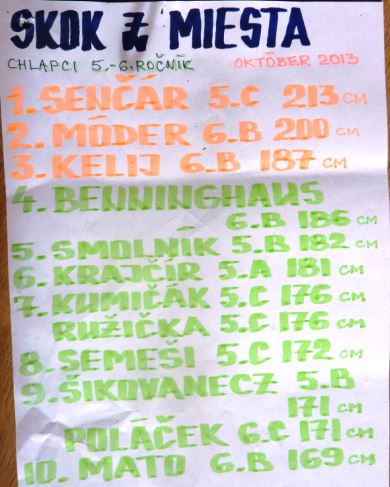 SKOK Z MIESTA
CHLAPCI 5.-6.ROČNÍK OKTÓBER 2013
1. SENČÁR 5.C 213 CM
2. MÓDER 6.B 200 CM
3. KELIJ 6.B 187 CM
4. BENNINGHAUS
6.B 186 CM
5. SMOLNÍK 5.B 182 CM
6. KRAJČÍR 5.A 181 CM
7. KUMIČÁK 5.C 176 CM
RUŽIČKA 5.C 176 CM
8. SEMEŠI 5.C 172 CM
9. ŠIKOVANECZ 5.B
171 CM
POLÁČEK 6.C 171 CM
10. MATO 6.B 169 CM